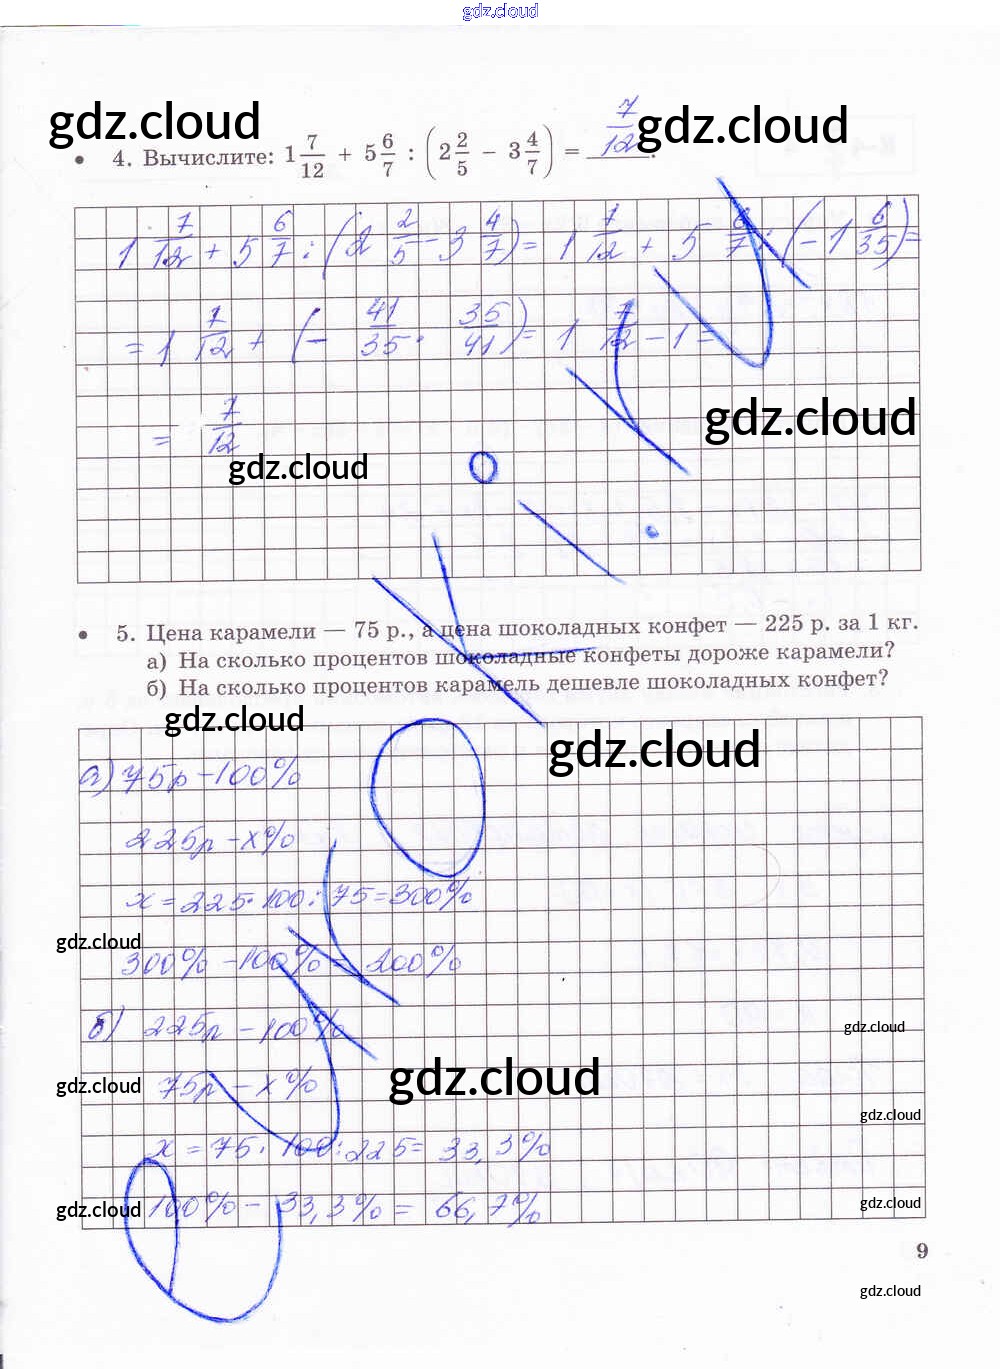 gdz.cloud
gdz.cloud gdz.cloud
4. Вычислите: 1 7/12 + 5 6/7 : (2 2/5 − 3 4/7) = 7/12.
1 7/12 + 5 6/7 : (2 2/5 − 3 4/7) = 1 7/12 + 5 6/7 : (−1 6/35) =
= 1 7/12 + (− 41/35 · 35/41) = 1 7/12 − 1 =
gdz.cloud
= 7/12
gdz.cloud
5. Цена карамели — 75 р., а цена шоколадных конфет — 225 р. за 1 кг.
а) На сколько процентов шоколадные конфеты дороже карамели?
б) На сколько процентов карамель дешевле шоколадных конфет?
gdz.cloud
gdz.cloud
а) 75р − 100%
225р − х%
х = 225 · 100 : 75 = 300%
gdz.cloud
300% − 100% = 200%
б) 225р − 100%
gdz.cloud
gdz.cloud
gdz.cloud 75р − х%
gdz.cloud
х = 75 · 100 : 225 = 33,3%
gdz.cloud 100% − 33,3% = 66,7%
gdz.cloud
9
gdz.cloud